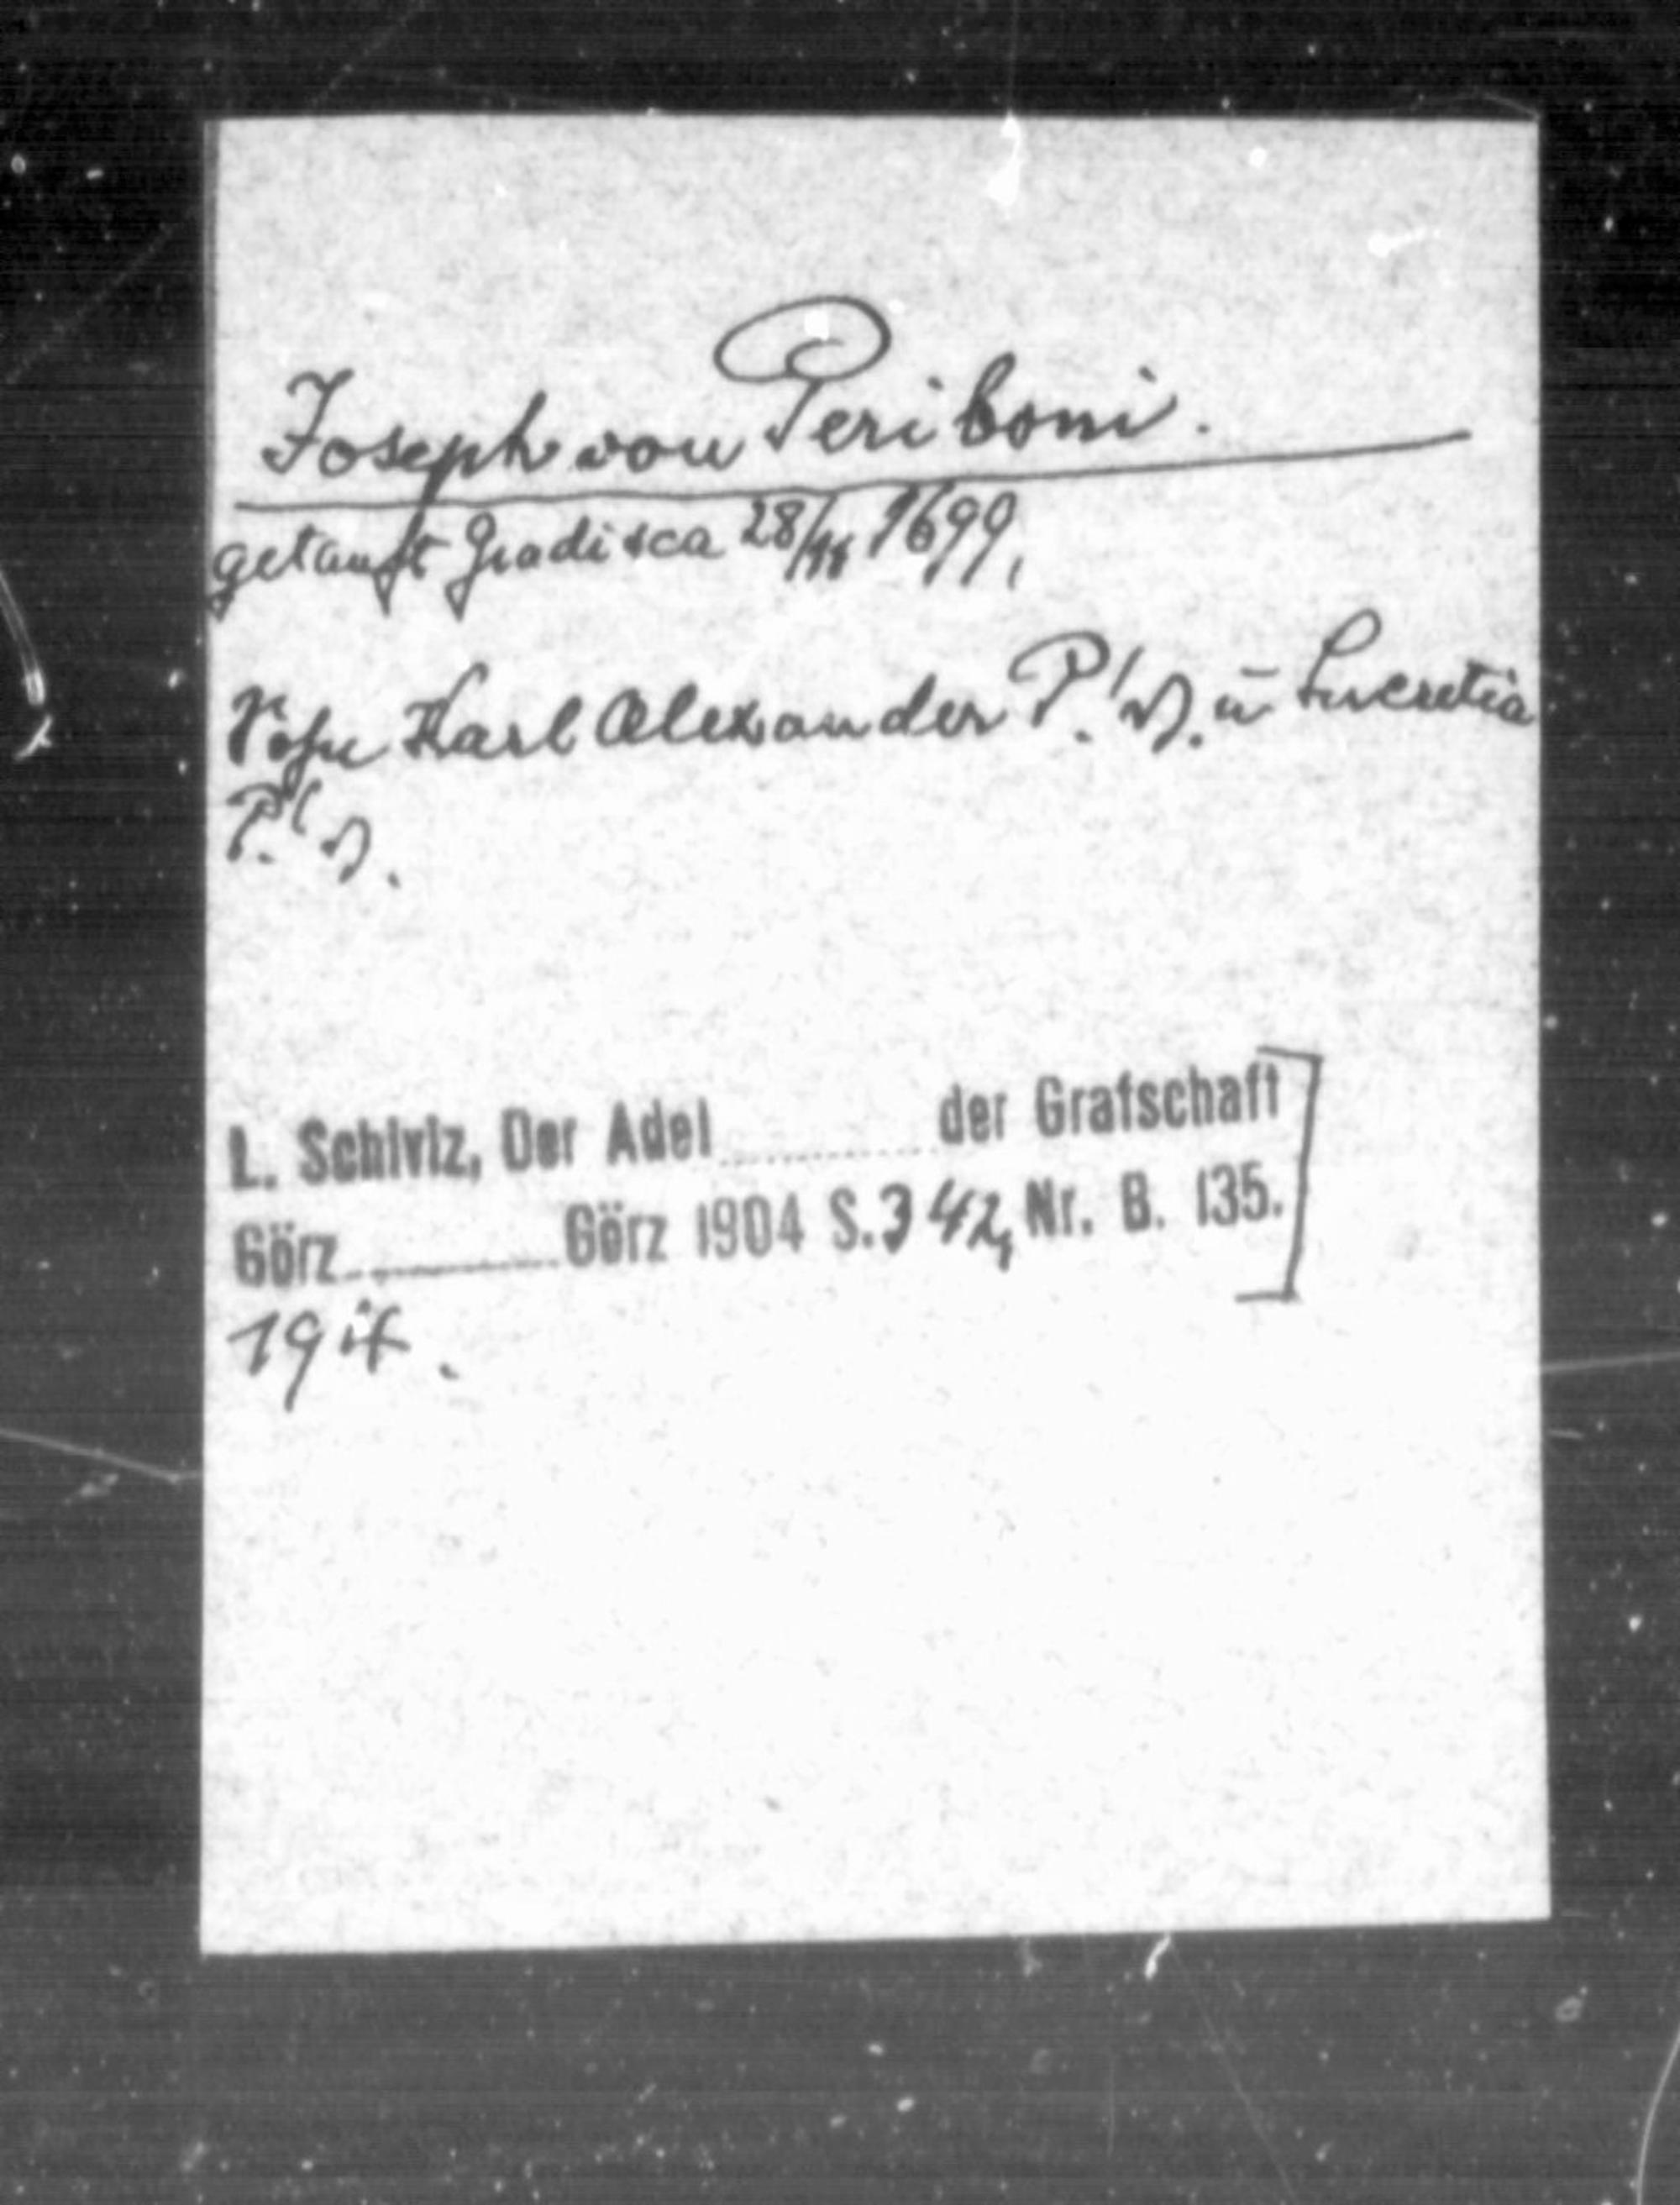 Joseph von Periboni.
getauft Gradisca 28/11 1699,
Sohn Karl Alexander P.'s. u Lucretia
P.'s.
L. Schiviz, Der Adel ........... der Grafschaft
Görz ........... Görz 1904 S. 342, Nr. B. 135.]
19